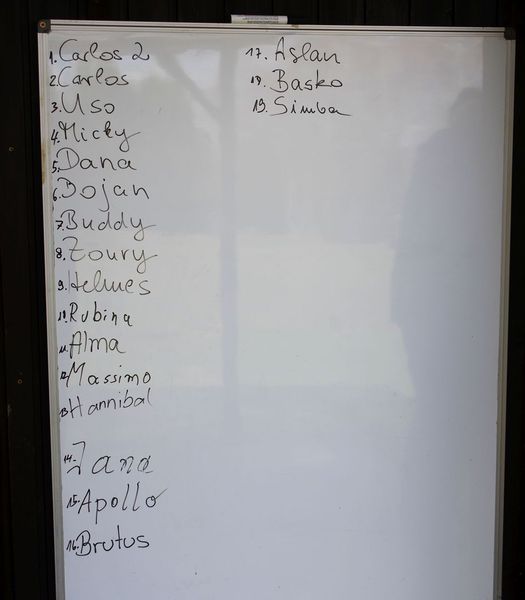 1. Carlos 2
2. Carlos
3. Uso
4. Micky
5. Dana
6. Bojan
7. Buddy
8. Zoury
9. Helmes
10. Rubina
11. Alma
12. Massimo
13. Hannibal
14. Zana
15. Apollo
16. Brutus
17. Aslan
18. Basko
19. Simba